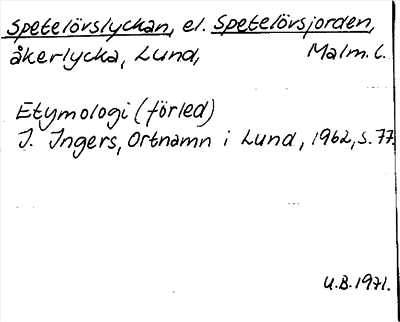 Spetelövslyckan, el. Spetelövsjorden,
åkerlycka, Lund, Malm. l.
Etymologi (förled)
I. Ingers, Ortnamn i Lund, 1962, s. 77.
U.B. 1971.